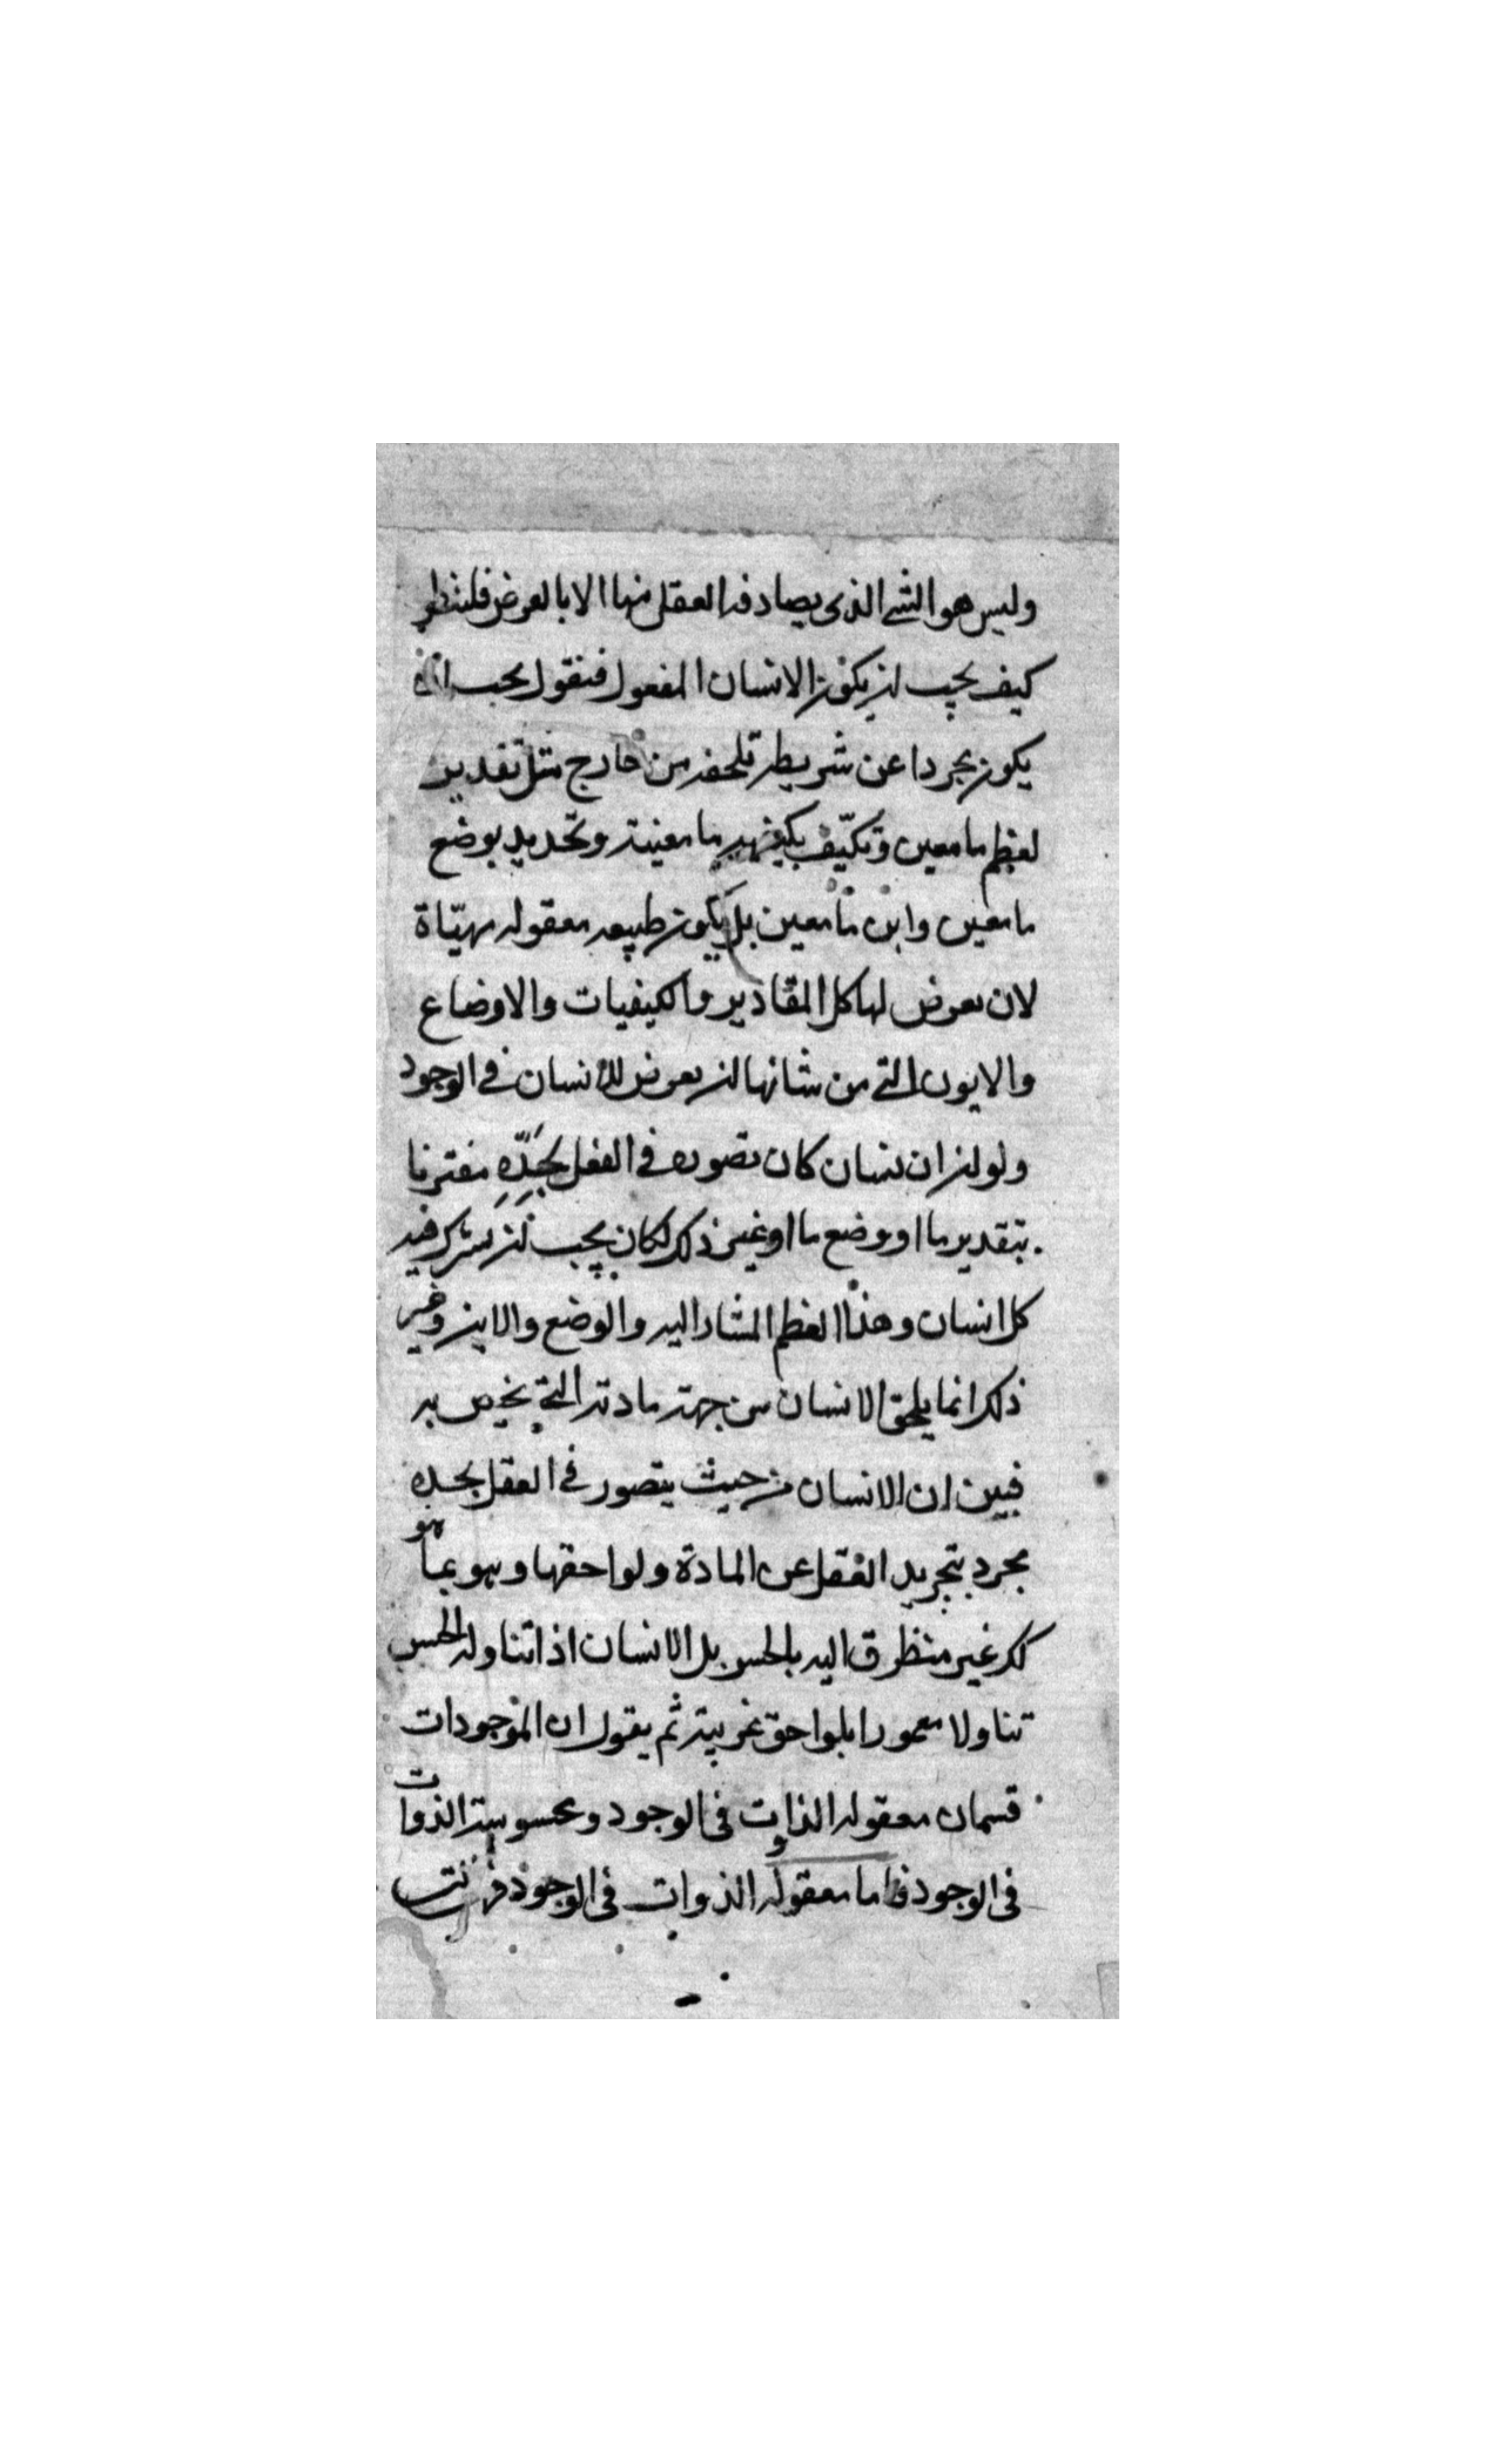 وليس هو الشي الذى يصادفه العقل منها الا بالعرض فلينظر
كيف يجب ان يكون الانسان المعقول فنقول يجب ان
يكون مجردا عن شريطه تلحقه من خارج مثل تقدير
لعظم ما معين وتكيّف بكيفيه ما معينة وتحديد بوضع
ما معين واين ما معين بل يكون طبيعه معقوله مهيّاة
لان تعرض لها كل المقادير والكيفيات والاوضاع
والايون التي من شانها ان تعرض للانسان في الوجود
ولو ان انسان كان تصوره في العقل بحَدِّهِ مقترنا
بتقدير ما او وضع ما او غير ذلك لكان يجب ان يشترك فيه
كل انسان وهذا العظم المشار اليه والوضع والاين وغير
ذلك انما يلحق الانسان من جهة مادته التي يخص به
فبين ان الانسان من حيث يتصور في العقل بحده
مجرد بتجريد العقل عن المادة ولواحقها وهو بما هو
كك غير متطرق اليه بالحس بل الانسان اذا تناوله الحس
تناولا معمورا بلواحق غريبة ثم يقول ان الموجودات
قسمان معقوله الذوات في الوجود ومحسوسة الذوات
في الوجود فاما معقوله الذوات في الوجود فهي التى